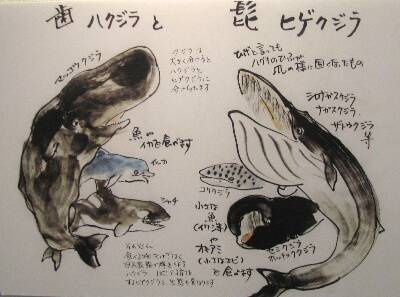 歯 ハクジラ と
髭 ヒゲクジラ
マッコウクジラ
クジラは
大きく分けると
ハクジラと
ヒゲクジラに
分けられます
ひげと言っても
ハグキのひふが
爪の様に固くなったもの
シロナガスクジラ
ナガスクジラ
ザトウクジラ
等
魚や
イカを食べます
イルカ
シャチ
コククジラ
小さな
魚
(イワシ等)
や
オキアミ
(小さなエビ)
を食べます
セミクジラ
ホッキョククジラ